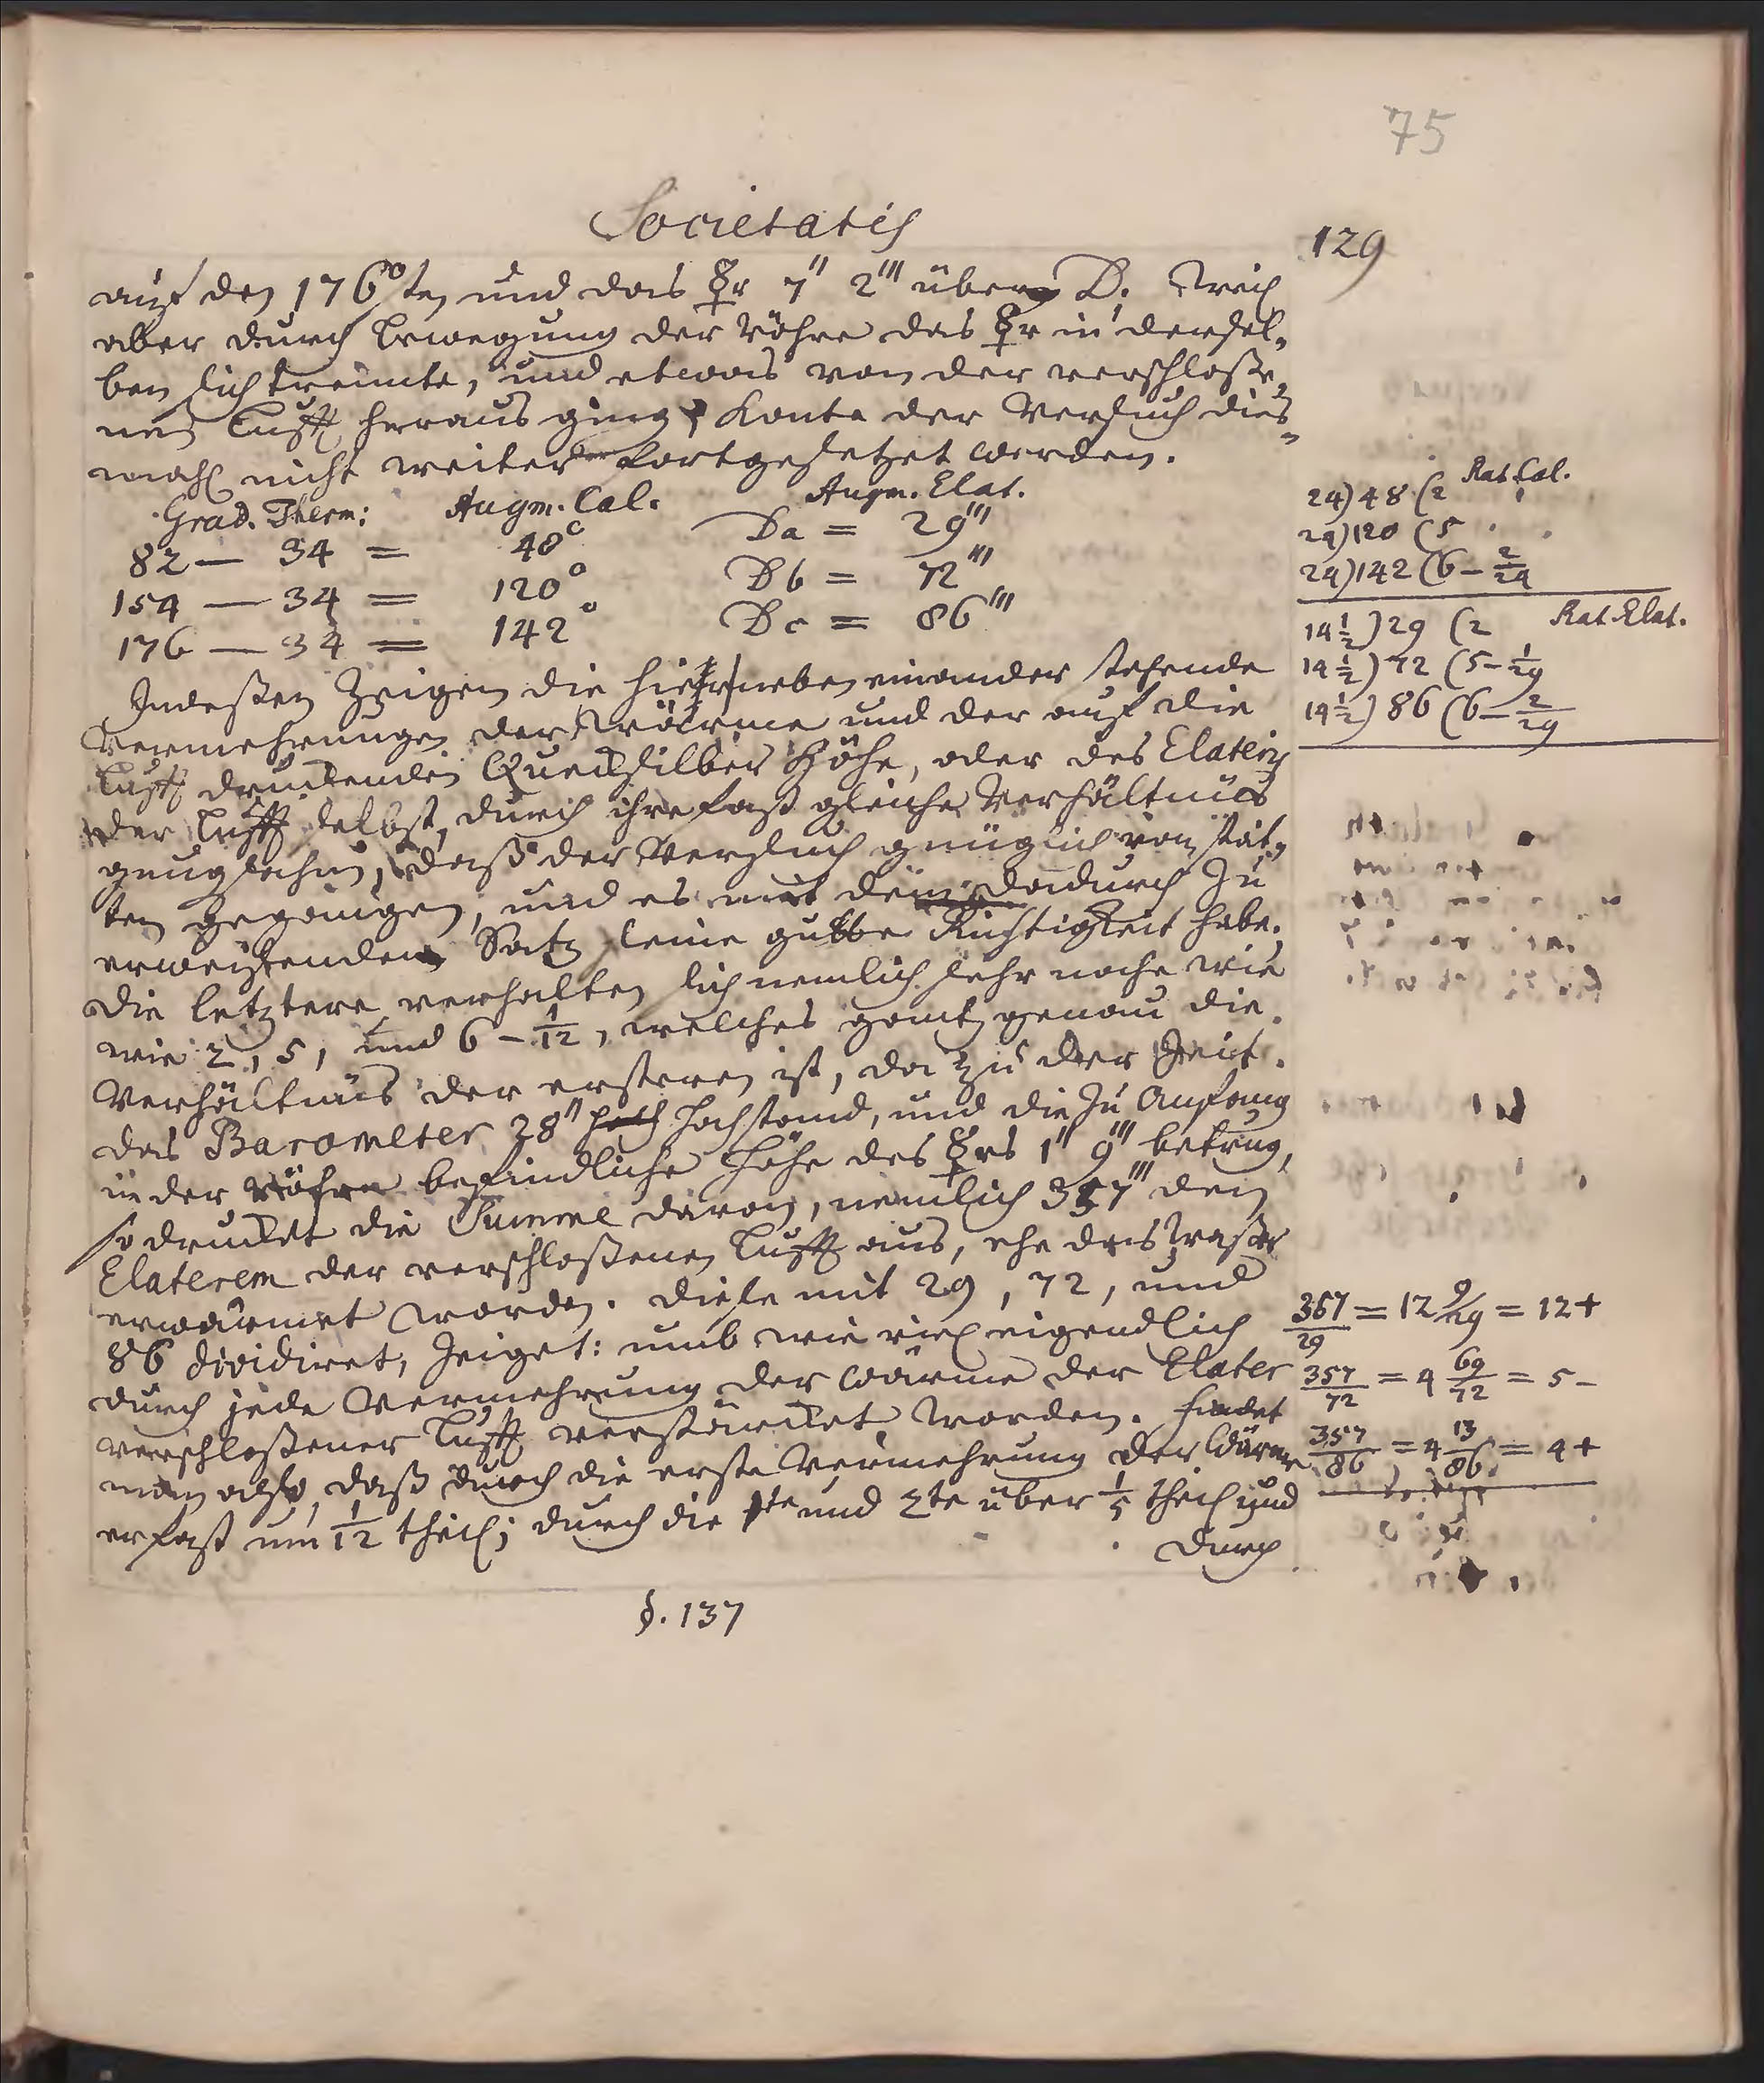 75
Societatis
129
auf den 176°sten und das ☿r 7'' 2''' über D. Weil
aber durch bewegung der Röhre das ☿r in dersel-
ben sich trennte, und etwas von der verschloße-
nen Lufft heraus ging, konte der Versuch dies-
mahl nicht weiter fortgesetzet werden.
Grad. Therm: Augm. Cal. Augm. Elat.
82 — 34 = 48° Da = 29'''
154 — 34 = 120° Db = 72'''
176 — 34 = 142° Dc = 86'''
Indeßen zeigen die hier neben einander stehende
Vermehrungen der Wärme und der auf die
Lufft druckenden Quecksilber Höhe, oder des Elateris
der Lufft selbst, durch ihre fast gleiche Verhältnüs
genugsahm, daß der Versuch gnüglich von stat-
ten gegangen, und es mit dem dadurch zu
erweisenden Satz seine gute Richtigkeit habe.
Die letztere verhalten sich nemlich sehr nahe wie
wie 2, 5, und 6 - 1/12, welches gantz genau die
Verhältnüs der ersteren ist, da zu der Zeit
das Barometer 28'' hoch stand, und die zu Anfang
in der Röhre befindliche Höhe des ☿rs 1'' 9''' betrug,
so drucket die Summe davon, nemlich 357''' den
Elaterem der verschloßenen Lufft aus, ehe das Waßer
erwärmet worden. Diese mit 29, 72, und
86 dividiret, zeiget: umb wie viel eigendlich
durch jede Vermehrung der Wärme der Elater
verschloßener Lufft verstärcket worden. Findet
man also, daß durch die erste Vermehrung der Wärme
er fast um 1/12 theil; durch die 1te und 2te über 1/5 theil und
durch
§. 137
Rat. Cal.
24) 48 (2
24) 120 (5
24) 142 (6 - 2/24
Rat. Elat.
14 1/2) 29 (2
14 1/2) 72 (5 - 1/29
14 1/2) 86 (6 - 2/29
357/29 = 12 9/29 = 12 +
357/72 = 4 69/72 = 5 -
357/86 = 4 13/86 = 4 +